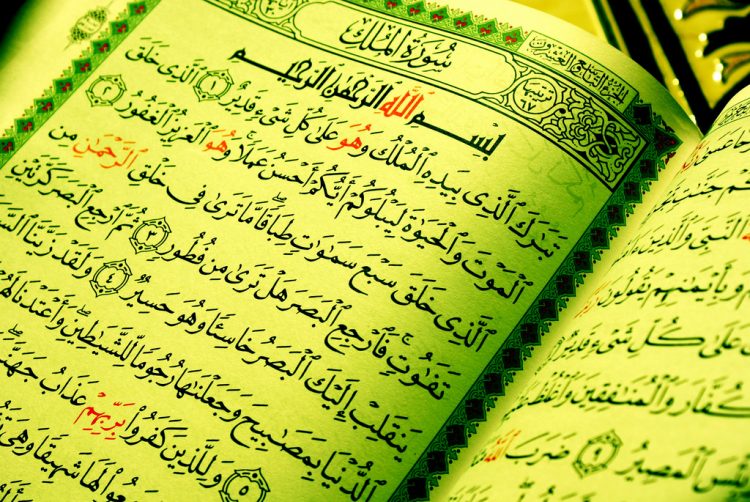 الجزء التاسع والعشرون
سُورَةُ المُلْكِ
ترتيبها ٦٧
بِسْمِ اللَّهِ الرَّحْمَٰنِ الرَّحِيمِ
تَبَٰرَكَ ٱلَّذِى بِيَدِهِ ٱلْمُلْكُ وَهُوَ عَلَىٰ كُلِّ شَىْءٍ قَدِيرٌ ١ ٱلَّذِى خَلَقَ
ٱلْمَوْتَ وَٱلْحَيَوٰةَ لِيَبْلُوَكُمْ أَيُّكُمْ أَحْسَنُ عَمَلًا ۚ وَهُوَ ٱلْعَزِيزُ ٱلْغَفُورُ ٢
ٱلَّذِى خَلَقَ سَبْعَ سَمَٰوَٰتٍ طِبَاقًا ۖ مَّا تَرَىٰ فِى خَلْقِ ٱلرَّحْمَٰنِ مِن
تَفَٰوُتٍ ۖ فَٱرْجِعِ ٱلْبَصَرَ هَلْ تَرَىٰ مِن فُطُورٍ ٣ ثُمَّ ٱرْجِعِ ٱلْبَصَرَ كَرَّتَيْنِ
يَنقَلِبْ إِلَيْكَ ٱلْبَصَرُ خَاسِئًا وَهُوَ حَسِيرٌ ٤ وَلَقَدْ زَيَّنَّا
ٱلدُّنْيَا بِمَصَٰبِيحَ وَجَعَلْنَٰهَا رُجُومًا لِّلشَّيَٰطِينِ ۖ وَأَعْتَدْنَا لَهُمْ
٥ وَلِلَّذِينَ كَفَرُوا۟ بِرَبِّهِمْ عَذَابُ جَهَنَّمَ
لَهَا شَهِيقًا وَهِىَ
ٱلنَّبِىَّ وَٱلَّذِينَ
وَبِأَيْمَٰنِهِمْ يَقُولُونَ
عَلَىٰ كُلِّ شَىْءٍ قَدِيرٌ
وَٱلْمُنَٰفِقِينَ وَٱغْلُظْ
ٱلْمَصِيرُ ٩ ضَرَبَ ٱللَّهُ